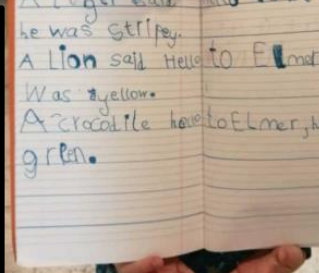 A tiger said
he was stripey.
A Lion said Hello to Elmer
Was yellow.
A crocodile hello to ELmer, h
green.